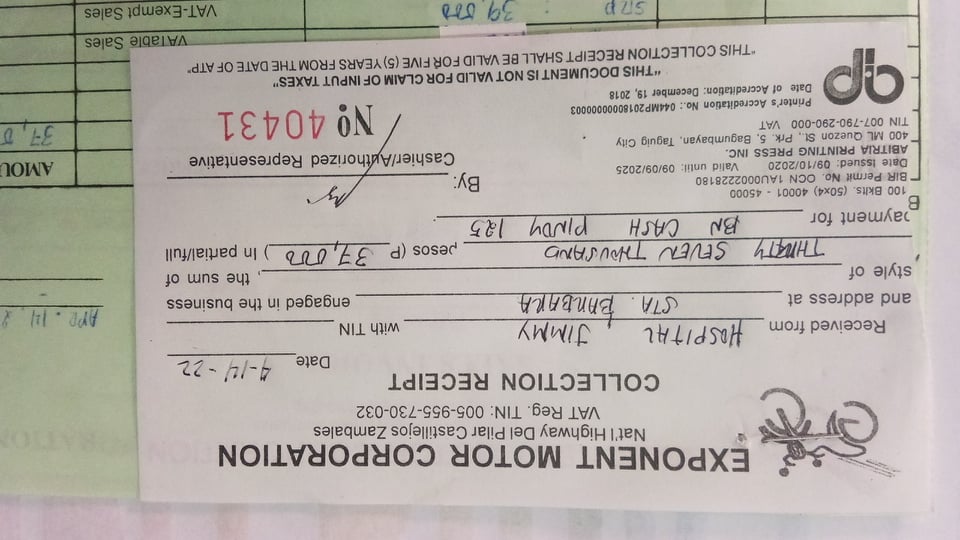 EXPONENT MOTOR CORPORATION
Nat'l Highway Del Pilar Castillejos Zambales
VAT Reg. TIN: 005-955-730-032
COLLECTION RECEIPT
Date 4-14-22
Received from HOSPITAL JIMMY with TIN
and address at STA. BARBARA engaged in the business
style of , the sum of
THIRTY SEVEN THOUSAND pesos (P 37,000 ) In partial/full
payment for BN CASH PINOY 125
By:
Cashier/Authorized Representative
100 Bklts. (50x4) 40001 - 45000
BIR Permit No. OCN 1AU0002228180
Date Issued: 09/10/2020 Valid until: 09/09/2025
ABITRIA PRINTING PRESS INC.
400 ML Quezon St., Prk. 5, Bagumbayan, Taguig City
TIN 007-790-290-000 VAT
Printer's Accreditation No.: 044MP20180000000003
Date of Accreditation: December 19, 2018
No 40431
"THIS DOCUMENT IS NOT VALID FOR CLAIM OF INPUT TAXES"
"THIS COLLECTION RECEIPT SHALL BE VALID FOR FIVE (5) YEARS FROM THE DATE OF ATP"
APR. 14. 2
AMOU
37,0
VATable Sales
VAT-Exempt Sales
SRP : 39,000